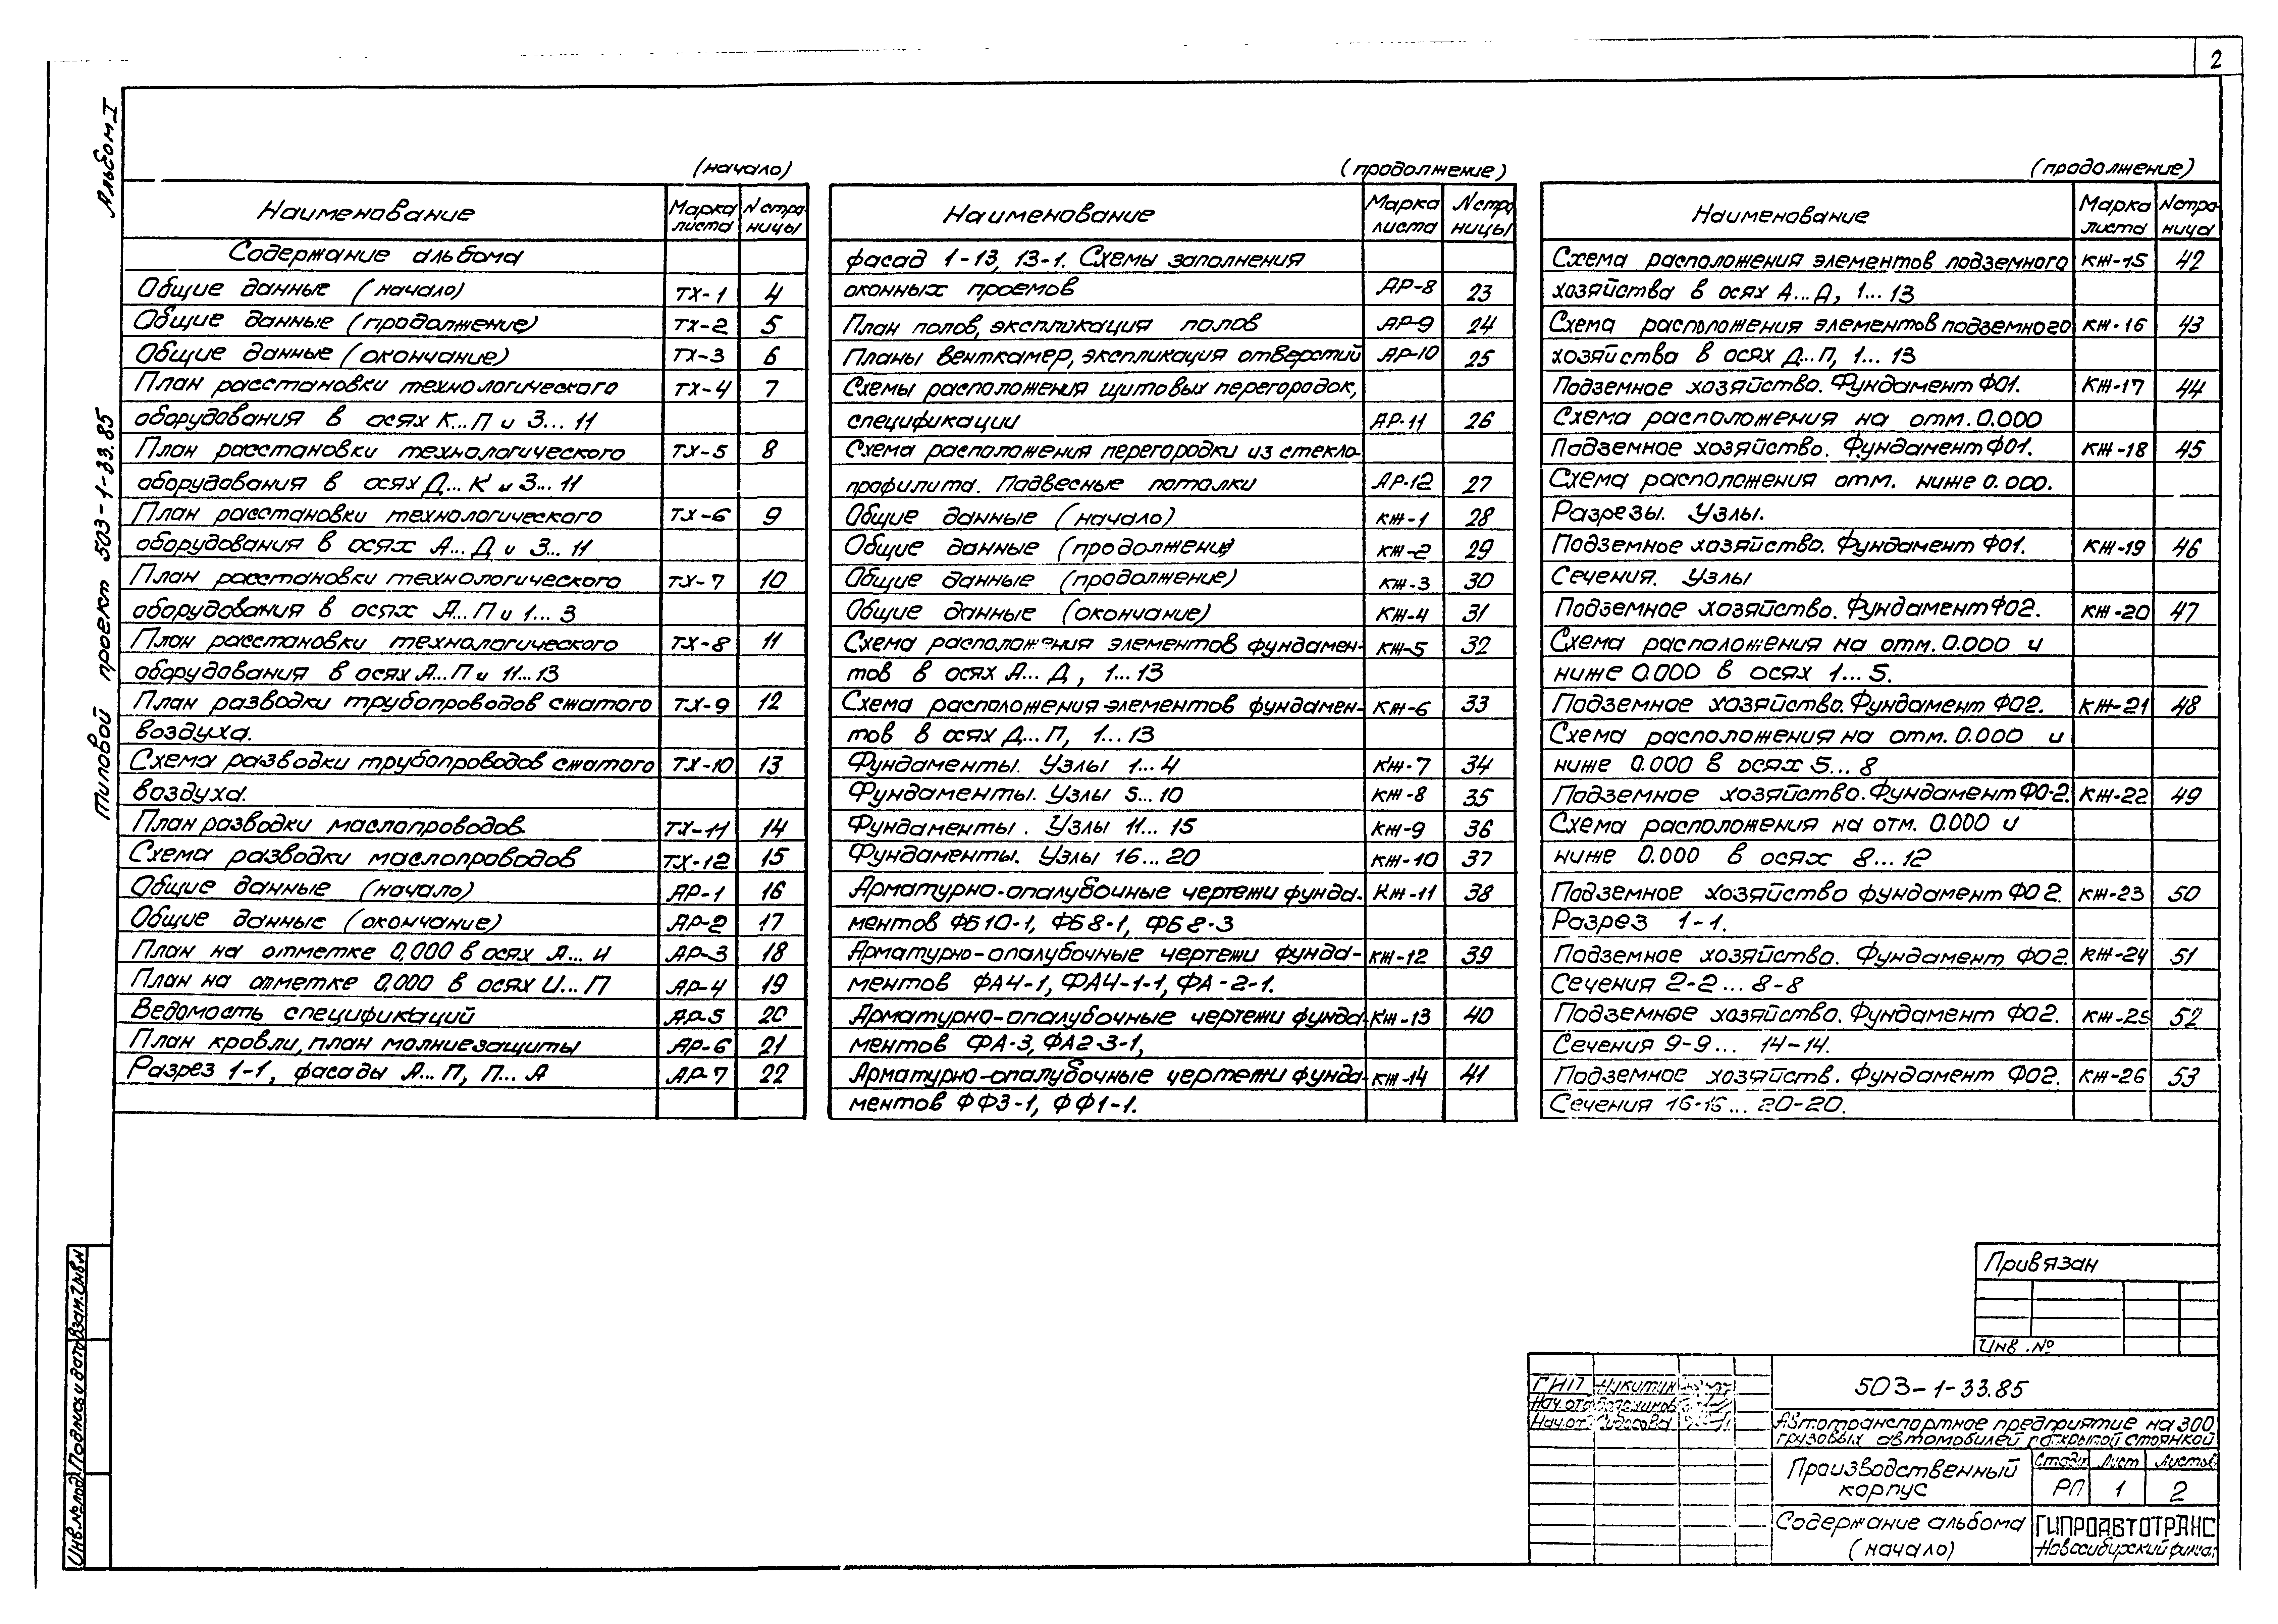 2
Альбом I
Типовой проект 503-1-33.85
(начало)
Наименование Марка листа N стра-ницы
Содержание альбома
Общие данные (начало) ТХ-1 4
Общие данные (продолжение) ТХ-2 5
Общие данные (окончание) ТХ-3 6
План расстановки технологического ТХ-4 7
оборудования в осях К...П и 3...11
План расстановки технологического ТХ-5 8
оборудования в осях Д...К и 3...11
План расстановки технологического ТХ-6 9
оборудования в осях А...Д и 3...11
План расстановки технологического ТХ-7 10
оборудования в осях А...П и 1...3
План расстановки технологического ТХ-8 11
оборудования в осях А...П и 11...13
План разводки трубопроводов сжатого ТХ-9 12
воздуха.
Схема разводки трубопроводов сжатого ТХ-10 13
воздуха.
План разводки маслопроводов ТХ-11 14
Схема разводки маслопроводов ТХ-12 15
Общие данные (начало) АР-1 16
Общие данные (окончание) АР-2 17
План на отметке 0,000 в осях А...И АР-3 18
План на отметке 0,000 в осях И...П АР-4 19
Ведомость спецификаций АР-5 20
План кровли, план молниезащиты АР-6 21
Разрез 1-1, фасады А...П, П...А АР-7 22
(продолжение)
Наименование Марка листа N стра ницы
фасад 1-13, 13-1. Схемы заполнения
оконных проемов АР-8 23
План полов, экспликация полов АР-9 24
Планы венткамер, экспликация отверстий АР-10 25
Схемы расположения щитовых перегородок,
спецификации АР-11 26
Схема расположения перегородки из стекло-
профилита. Подвесные потолки АР-12 27
Общие данные (начало) КЖ-1 28
Общие данные (продолжение) КЖ-2 29
Общие данные (продолжение) КЖ-3 30
Общие данные (окончание) КЖ-4 31
Схема расположения элементов фундамен- КЖ-5 32
тов в осях А...Д, 1...13
Схема расположения элементов фундамен- КЖ-6 33
тов в осях Д...П, 1...13
Фундаменты. Узлы 1...4 КЖ-7 34
Фундаменты. Узлы 5...10 КЖ-8 35
Фундаменты. Узлы 11...15 КЖ-9 36
Фундаменты. Узлы 16...20 КЖ-10 37
Арматурно-опалубочные чертежи фунда- КЖ-11 38
ментов ФБ10-1, ФБ8-1, ФБ8-3
Арматурно-опалубочные чертежи фунда- КЖ-12 39
ментов ФА4-1, ФА4-1-1, ФА-2-1.
Арматурно-опалубочные чертежи фунда- КЖ-13 40
ментов ФА-3, ФА2-3-1,
Арматурно-опалубочные чертежи фунда- КЖ-14 41
ментов ФФ3-1, ФФ1-1.
(продолжение)
Наименование Марка листа N стра-ница
Схема расположения элементов подземного КЖ-15 42
хозяйства в осях А...Д, 1...13
Схема расположения элементов подземного КЖ-16 43
хозяйства в осях Д...П, 1...13
Подземное хозяйство. Фундамент Ф01. КЖ-17 44
Схема расположения на отм. 0.000
Подземное хозяйство. Фундамент Ф01. КЖ-18 45
Схема расположения отм. ниже 0.000.
Разрезы. Узлы.
Подземное хозяйство. Фундамент Ф01. КЖ-19 46
Сечения. Узлы
Подземное хозяйство. Фундамент Ф02. КЖ-20 47
Схема расположения на отм. 0.000 и
ниже 0.000 в осях 1...5.
Подземное хозяйство. Фундамент Ф02. КЖ-21 48
Схема расположения на отм. 0.000 и
ниже 0.000 в осях 5...8
Подземное хозяйство. Фундамент Ф0-2. КЖ-22 49
Схема расположения на отм. 0.000 и
ниже 0.000 в осях 8...12
Подземное хозяйство фундамент Ф02. КЖ-23 50
Разрез 1-1.
Подземное хозяйство. Фундамент Ф02. КЖ-24 51
Сечения 2-2...8-8
Подземное хозяйство. Фундамент Ф02. КЖ-25 52
Сечения 9-9... 14-14.
Подземное хозяйств. Фундамент Ф02. КЖ-26 53
Сечения 16-16...20-20.
Привязан
Инв. №
ГИП Никитин
Нач.отд
Нач.от
503-1-33.85
Автотранспортное предприятие на 300
грузовых автомобилей с открытой стоянкой
Производственный корпус
Стадия Лист Листов
РП 1 2
Содержание альбома (начало)
ГИПРОАВТОТРАНС
Новосибирский филиал
Инв.№подл Подпись и дата Взам.инв.N